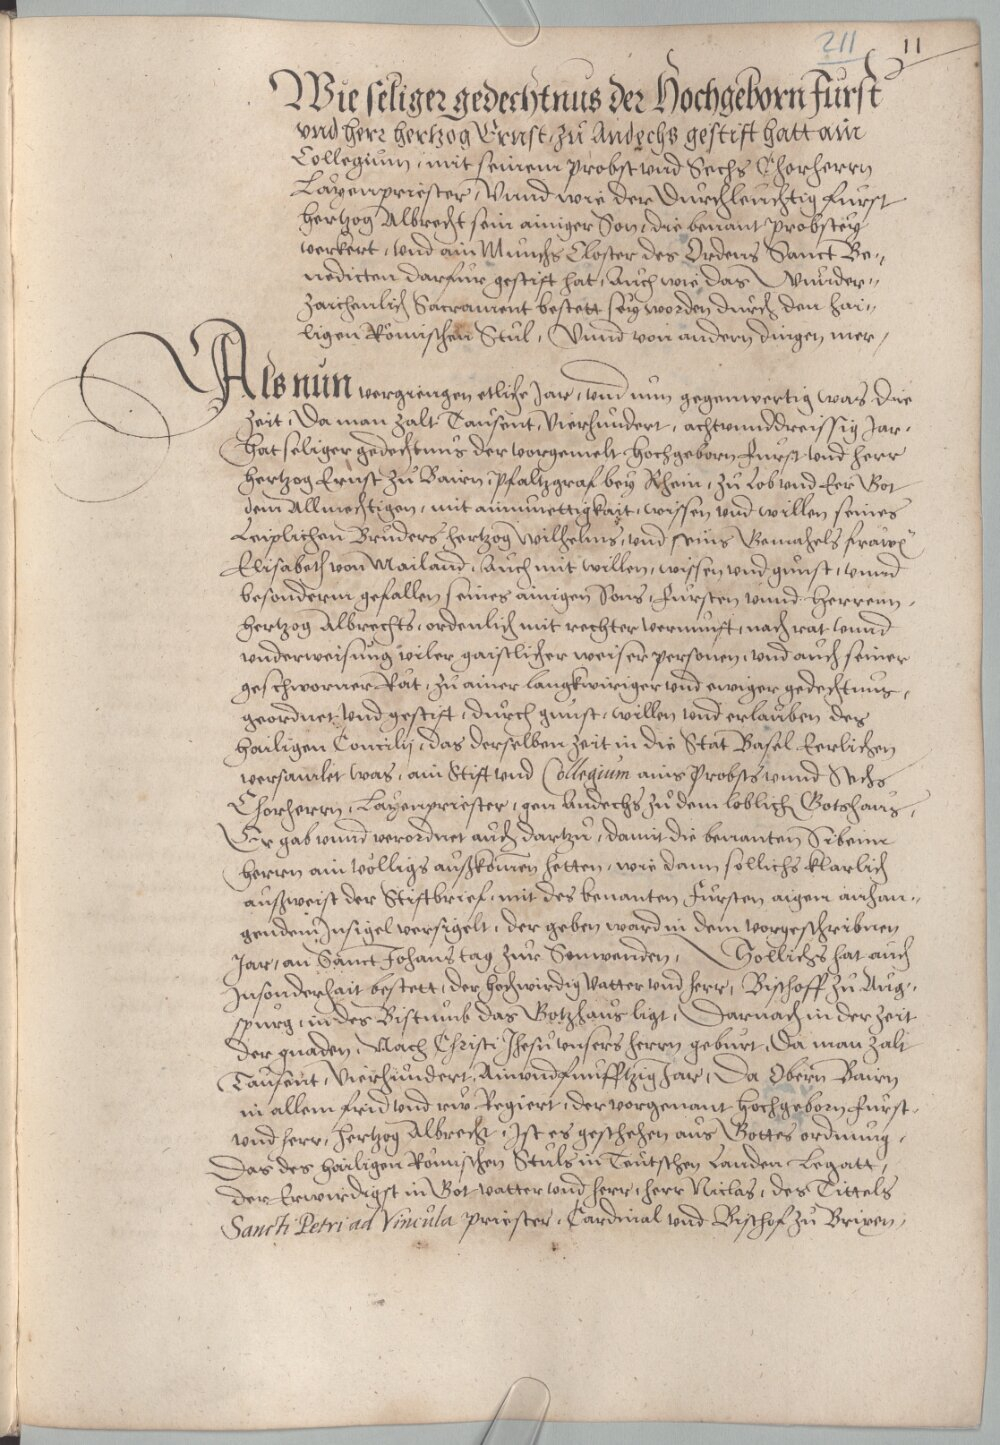 211 11
Wie seliger gedechtnus der Hochgeborn Fürst
vnd herr hertzog Ernst, zů Andechs gestift hatt ain
Collegium, mit seinem Probst vnd Sechs Chorherrn
Layenpriester, Vnnd wie der Durchleuchtig Fürst
hertzog Albrecht sein ainiger Son, die benant Probstey
verkert, vnd ain Münchs Closter des Ordens Sanct Be„
nedicten darfür gestift hat, Auch wie das Wunder„
zaichenlich Sacrament bestett sey worden durch den hai„
ligen Römischen Stůl, Vnnd von andern dingen mer,
Als nůn vergiengen etliche Jar, vnd nun gegenwertig was die
zeit, Da man zalt Tausent, Vierhundert, achtvnnddreissig Jar,
Hat seliger gedechtnus der vorgemelt Hochgeborn Fürst vnd herr
hertzog Ernst zů Bairn, Pfaltzgraf bey Rhein, zů Lob vnd Eer Got
dem Allmechtigen, mit ainmuettigkait, wissen vnd willen seines
Leiplichen Bruders hertzog Wilhelms, vnd seins Gemahels frawen
Elisabeth von Mailand, Auch mit willen, wissen vnd gunst, vnnd
besonderm gefallen seines ainigen Sons, Fürsten vnnd Herrenn,
hertzog Albrechts, ordenlich mit rechter vernunft, nach rat vnnd
vnderweisung viler gaistlicher weiser personen, vnd auch seiner
geschworner Rät, zů ainer langkwiriger vnd ewiger gedechtnus,
geordnet vnd gestift, durch gunst, willen vnd erlauben des
hailigen Concilij, das derselben zeit in die Stat Basel Eerlichen
versamlet was, ain Stift vnd Collegium ains Probsts vnnd Sechs
Chorherrn, Layenpriester, gen Andechs zů dem loblich Gotshaus,
Er gab vnnd verordnet auch dartzu, damit die benanten Sibenn
herrn ain völligs außkomen hetten, wie dann sollichs klarlich
außweist der Stiftbrief, mit des benanten Fürsten aigen anhan„
gendem Insigel versigelt, der geben ward in dem vorgeschribnen
Jar, an Sanct Johans tag zur Sonwenden, Sollichs hat auch
Insonderhait bestett, der hochwirdig Vatter vnd herr, Bischoff zů Aug„
spurg, in des Bistumb das Gotzhaus ligt, Darnach in der zeit
der gnaden, Nach Christi Jhesu vnsers herrn geburt, Da man zalt
Tausent, Vierhundert, Ainvndfunfftzig Jar, Da Obern Bairn
in allem frid vnd rüw Regiert, der vorgenant Hochgeborn Fürst,
vnd herr, Hertzog Albrecht, Ist es geschehen aus Gottes ordnung,
Das des hailigen Römischen Stůls in Teutschen Landen Legatt,
der Erwirdigst in Got vatter vnd herr, herr Niclas, des Tittels
Sancti Petri ad Vincula Priester, Cardinal vnd Bischof zů Brixen,